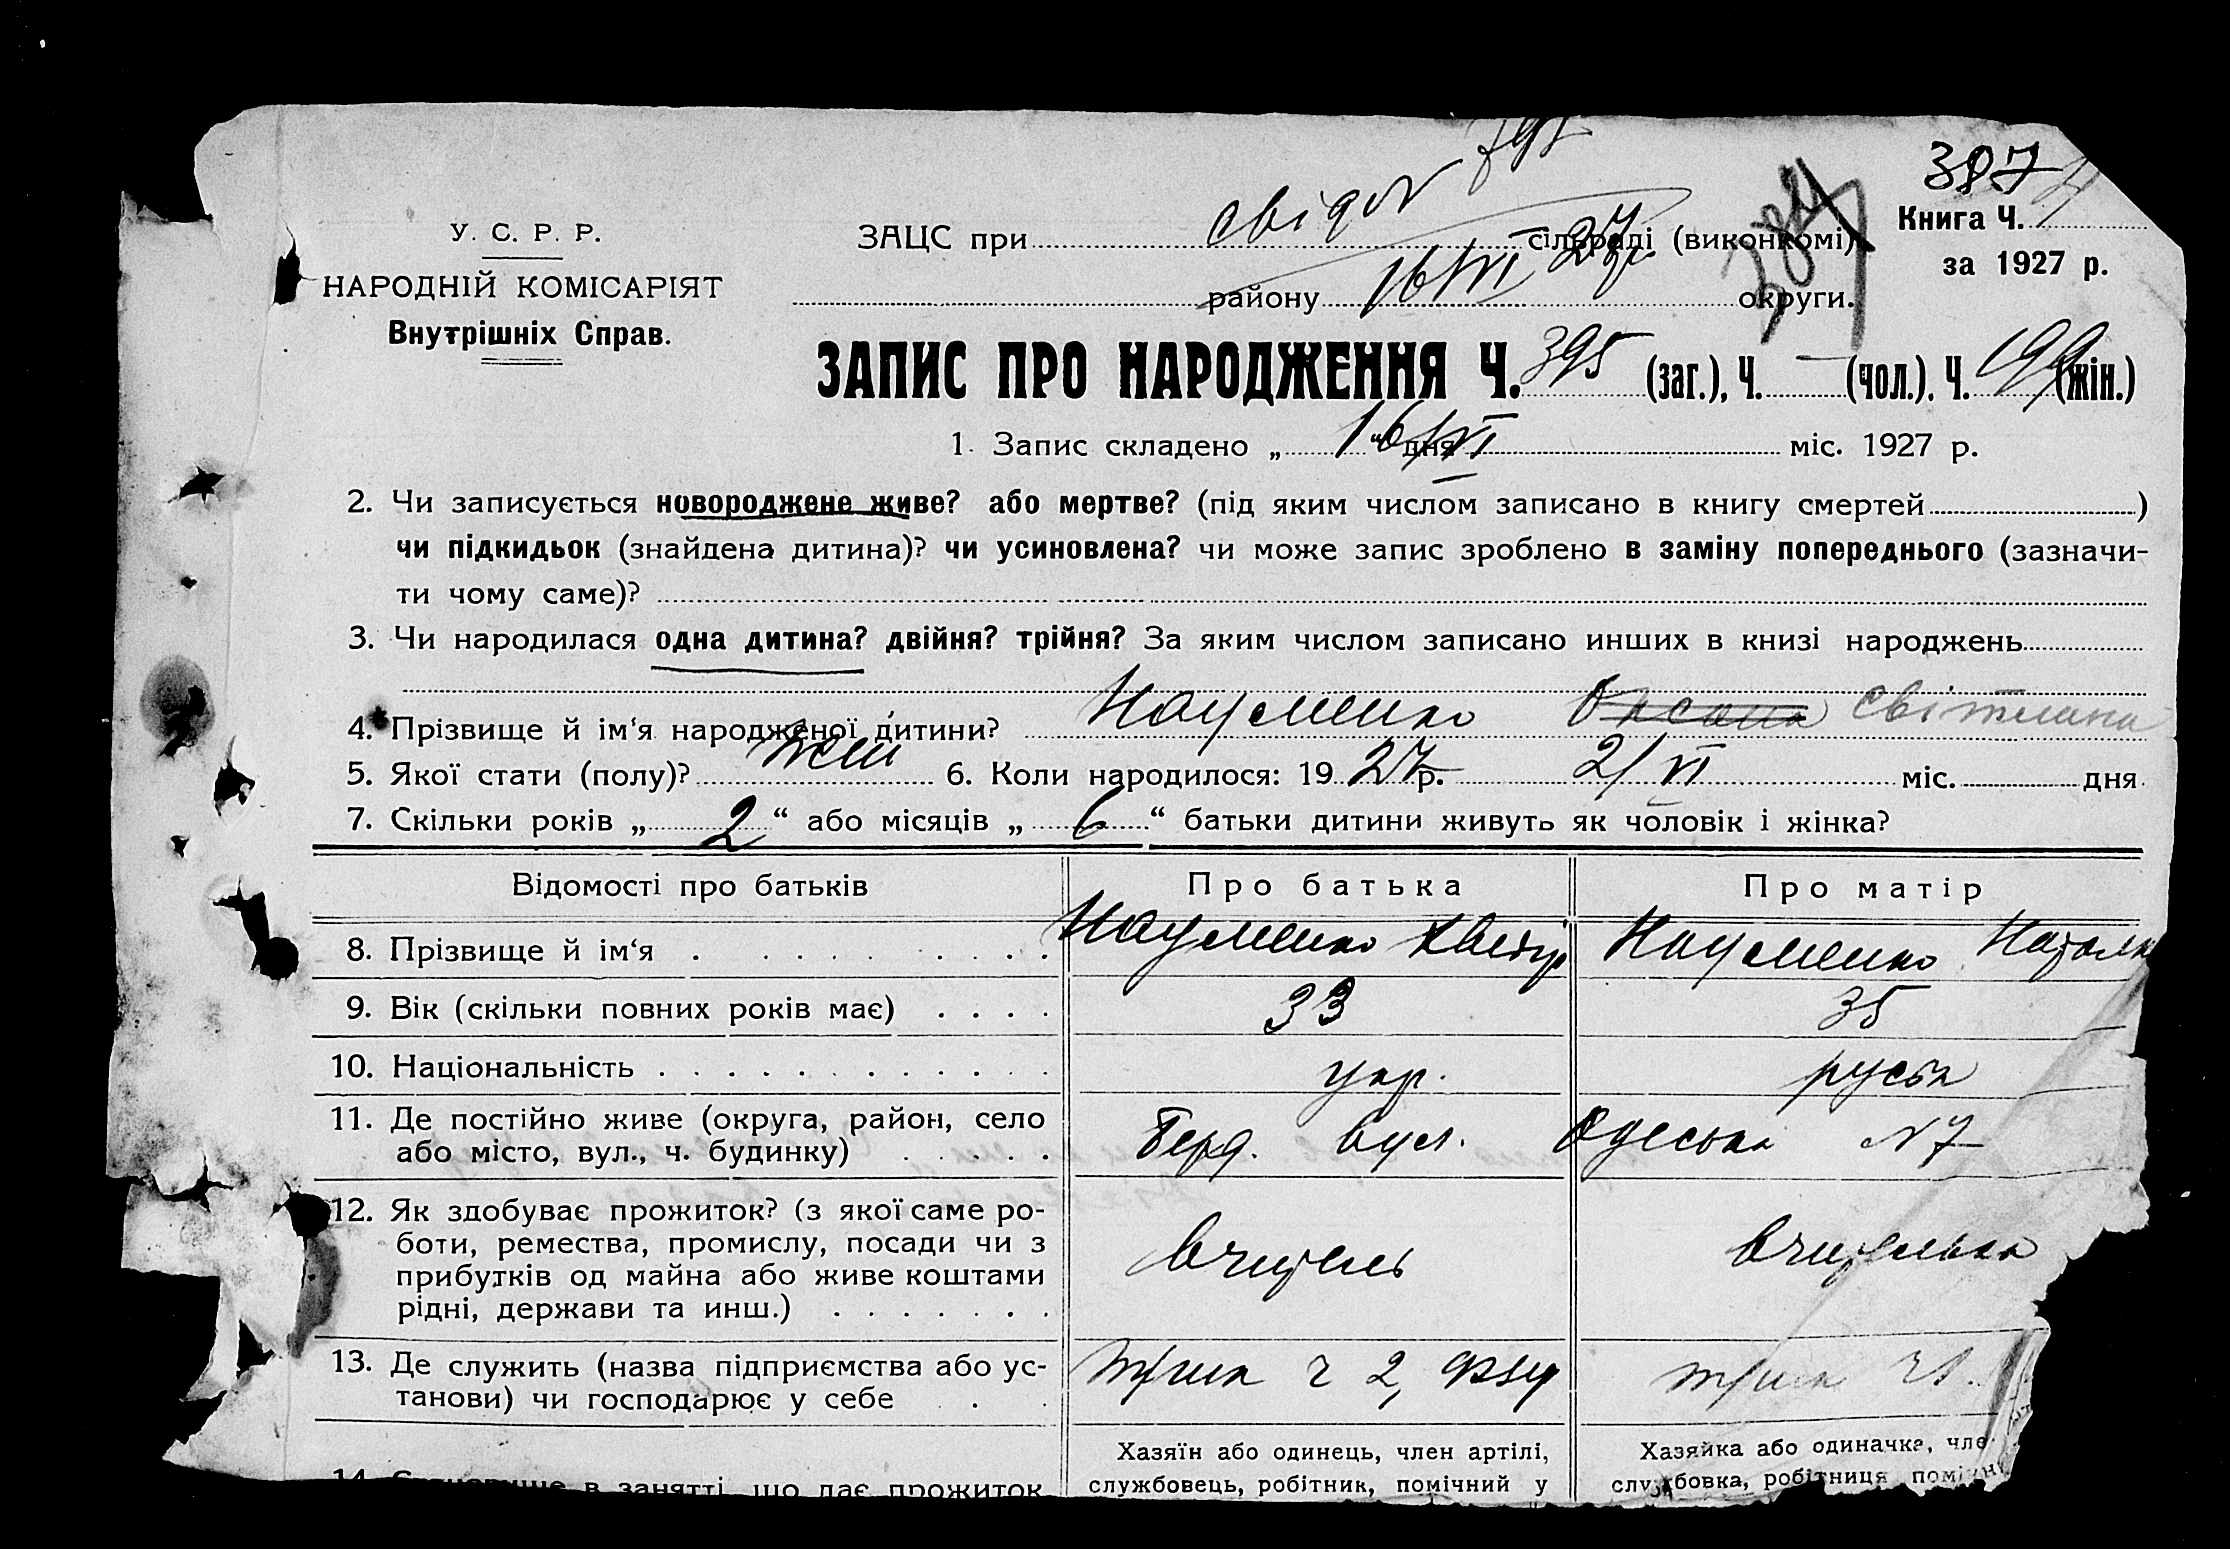 395
387
У. С. Р. Р.
НАРОДНІЙ КОМІСАРІЯТ
Внутрішніх Справ.
ЗАЦС при свідоц сільраді (виконкомі)
Книга Ч.
за 1927 р.
району 16/VI 27 округи.
ЗАПИС ПРО НАРОДЖЕННЯ Ч. 395 (заг.), Ч. — (чол.), Ч. 199 (жін.)
1. Запис складено „ 16/VI “ дня міс. 1927 р.
2. Чи записується новороджене живе? або мертве? (під яким числом записано в книгу смертей )
чи підкидьок (знайдена дитина)? чи усиновлена? чи може запис зроблено в заміну попереднього (зазначи-
ти чому саме)?
3. Чи народилася одна дитина? двійня? трійня? За яким числом записано инших в книзі народжень
4. Прізвище й ім‘я народженої дитини? Науменко Оксана Світлана
5. Якої стати (полу)? жін 6. Коли народилося: 19 27 р. 2/VI міс. дня
7. Скільки років „ 2 “ або місяців „ 6 “ батьки дитини живуть як чоловік і жінка?
Відомості про батьків Про батька Про матір
8. Прізвище й ім‘я . . . . . . . . Науменко Науменко Наталя
9. Вік (скільки повних років має) . . . . 33 35
10. Національність . . . . . . . . . . . . укр. руська
11. Де постійно живе (округа, район, село
або місто, вул., ч. будинку) . . . . . Берд. вул. Одеська N 7
12. Як здобуває прожиток? (з якої саме ро-
боти, ремества, промислу, посади чи з
прибутків од майна або живе коштами
рідні, держави та инш.) . . . . . . . вчитель вчителька
13. Де служить (назва підприємства або ус-
танови) чи господарює у себе . . тр/шк ч 2, ФЗУ тр/шк ч 1.
Хазяїн або одинець, член артілі,
службовець, робітник, помічний у
Хазяйка або одиначка, чле
службовка, робітниця поміч
14. Становище в занятті, що дає прожиток